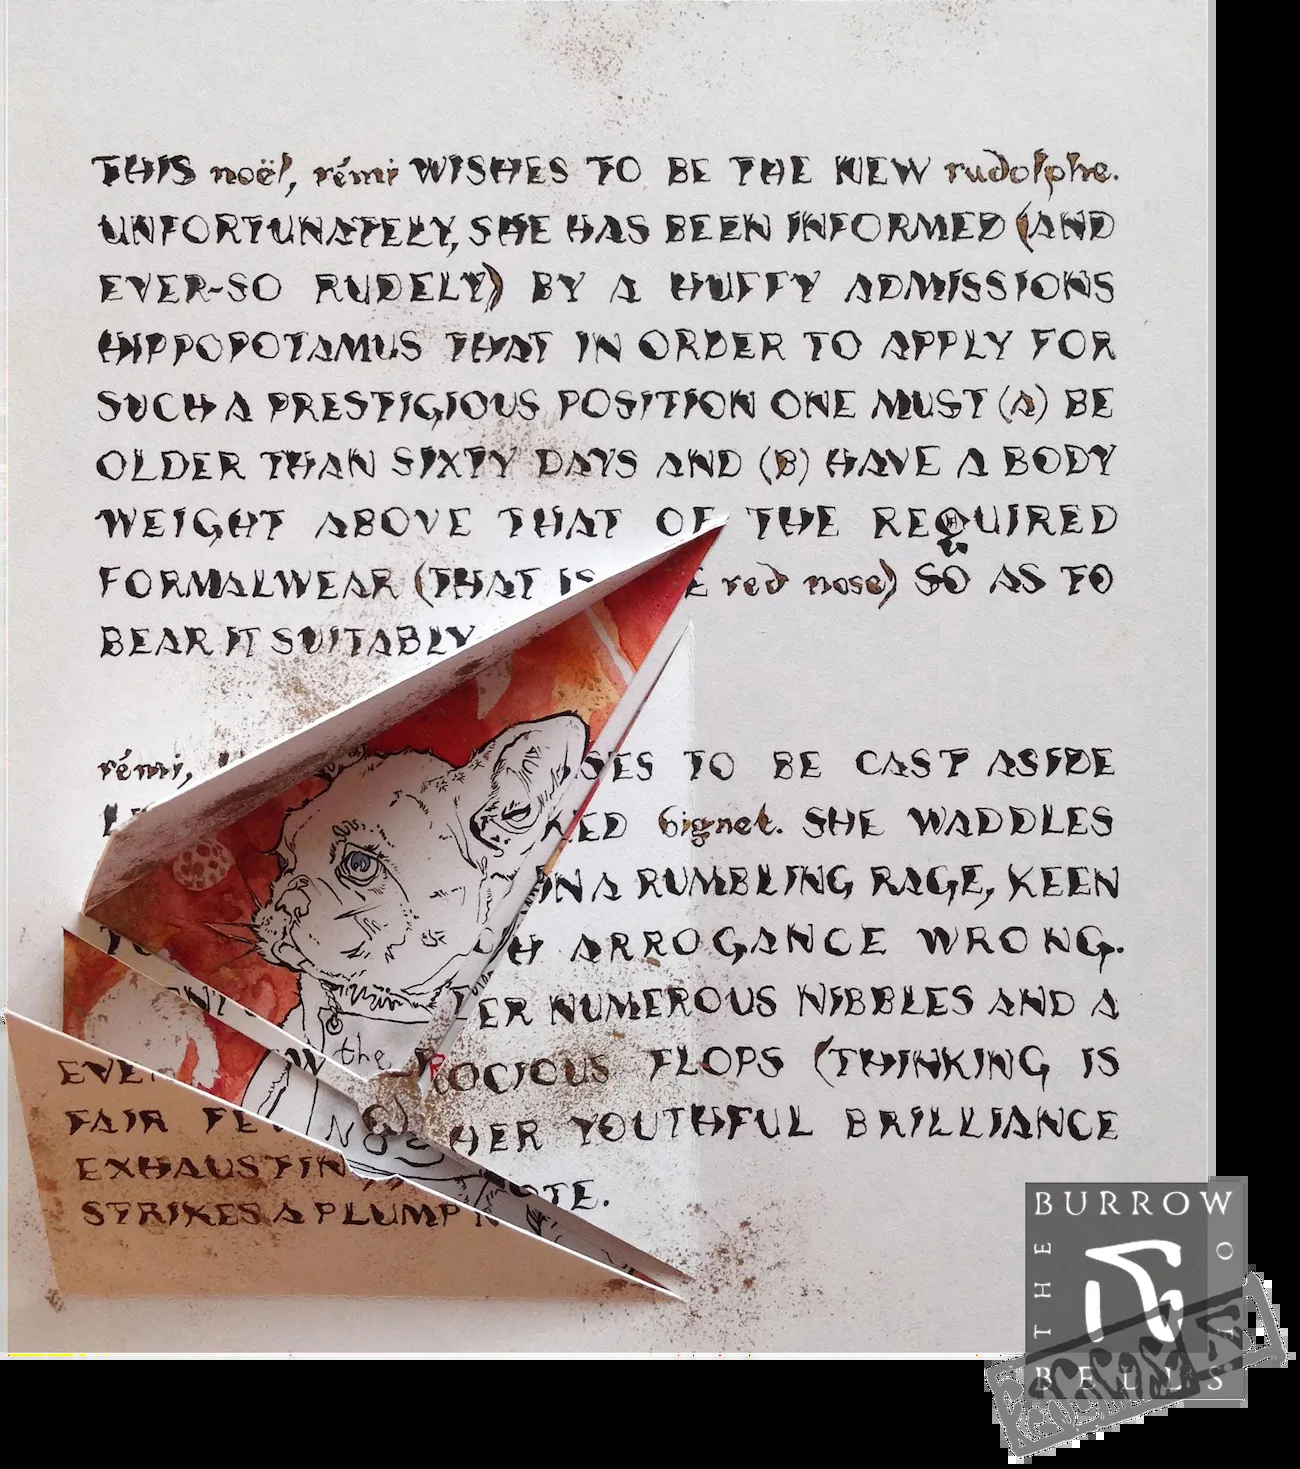 THIS noël, rémi WISHES TO BE THE NEW rudolphe.
UNFORTUNATELY, SHE HAS BEEN INFORMED (AND
EVER-SO RUDELY) BY A HUFFY ADMISSIONS
HIPPOPOTAMUS THAT IN ORDER TO APPLY FOR
SUCH A PRESTIGIOUS POSITION ONE MUST (A) BE
OLDER THAN SIXTY DAYS AND (B) HAVE A BODY
WEIGHT ABOVE THAT OF THE REQUIRED
FORMALWEAR (THAT IS red nose) SO AS TO
BEAR IT SUITABLY
rémi, TO BE CAST ASIDE
bignet. SHE WADDLES
IN A RUMBLING RAGE, KEEN
ARROGANCE WRONG.
NUMEROUS NIBBLES AND A
the FLOPS (THINKING IS
FAIR HER YOUTHFUL BRILLIANCE
EXHAUSTIN
STRIKES A PLUMP
THE BURROW OF BELLS